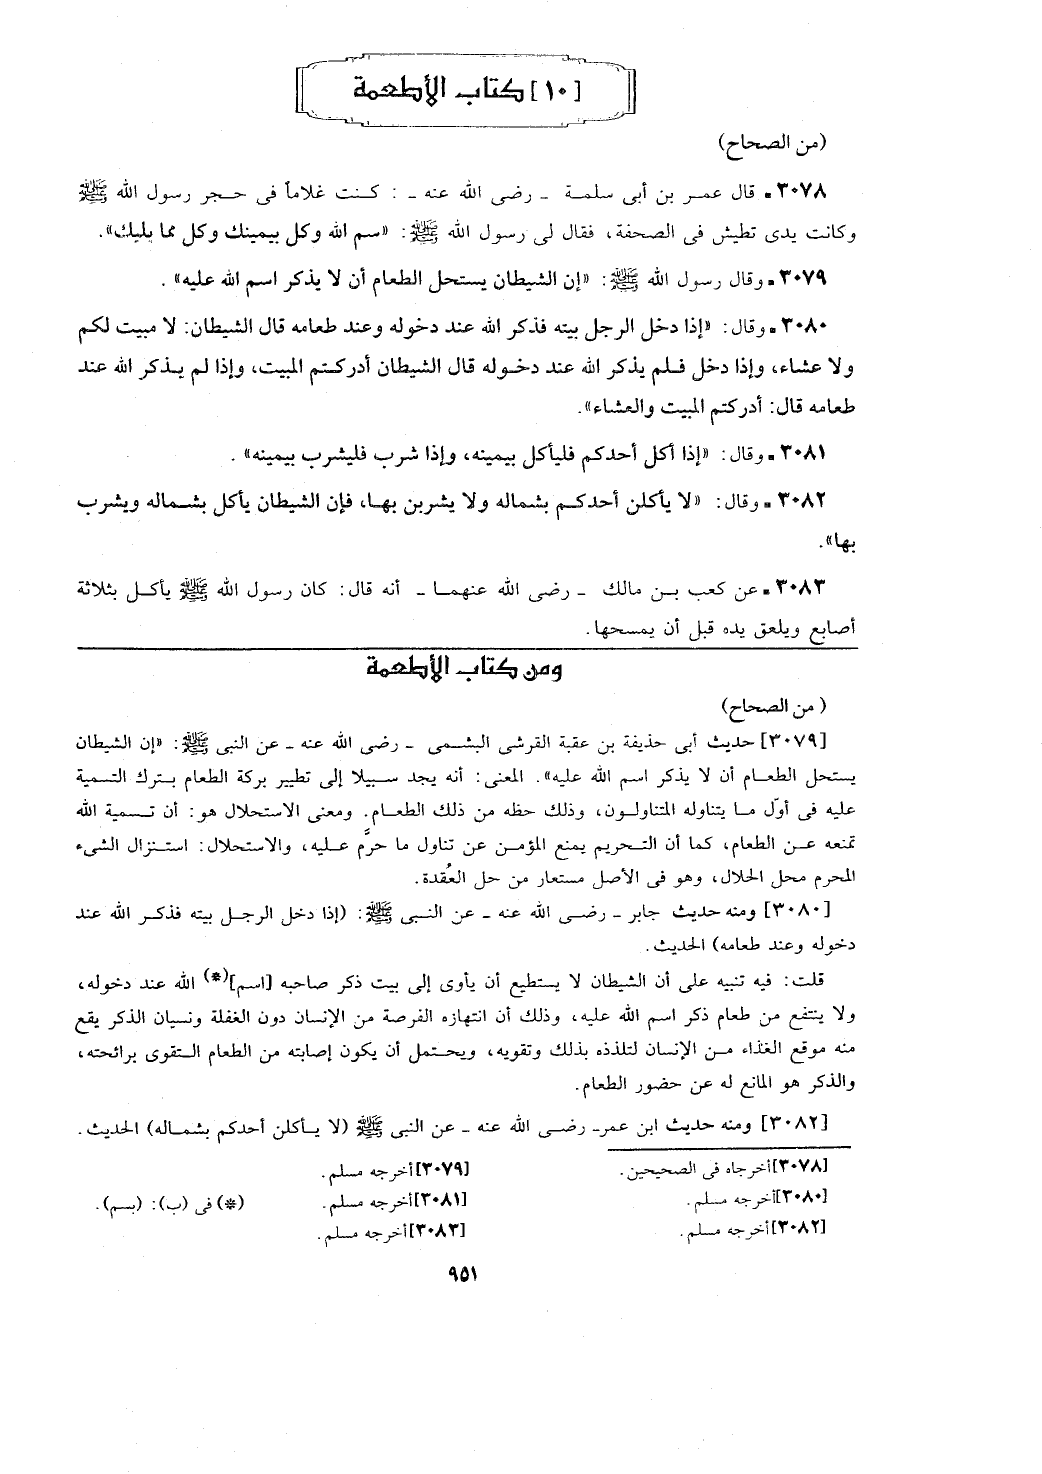 [١٠] كتاب الأطعمة
(من الصحاح)
٣٠٧٨ـ قال عمر بن أبى سلمة ـ رضى الله عنه ـ : كنت غلاماً فى حجر رسول الله ﷺ
وكانت يدى تطيش فى الصحفة، فقال لى رسول الله ﷺ: «سم الله وكل بيمينك وكل مما يليك».
٣٠٧٩ـ وقال رسول الله ﷺ: «إن الشيطان يستحل الطعام أن لا يذكر اسم الله عليه» .
٣٠٨٠ـ وقال: «إذا دخل الرجل بيته فذكر الله عند دخوله وعند طعامه قال الشيطان: لا مبيت لكم
ولا عشاء، وإذا دخل فلم يذكر الله عند دخوله قال الشيطان أدركتم المبيت، وإذا لم يذكر الله عند
طعامه قال: أدركتم المبيت والعشاء».
٣٠٨١ـ وقال: «إذا أكل أحدكم فليأكل بيمينه، وإذا شرب فليشرب بيمينه» .
٣٠٨٢ـ وقال: «لا يأكلن أحدكم بشماله ولا يشربن بها، فإن الشيطان يأكل بشماله ويشرب
بها».
٣٠٨٣ـ عن كعب بن مالك ـ رضى الله عنهما ـ أنه قال: كان رسول الله ﷺ يأكل بثلاثة
أصابع ويلعق يده قبل أن يمسحها.
ومن كتاب الأطعمة
( من الصحاح)
[٣٠٧٩] حديث أبى حذيفة بن عقبة القرشى البشمى ـ رضى الله عنه ـ عن النبى ﷺ: «إن الشيطان
يستحل الطعام أن لا يذكر اسم الله عليه». المعنى: أنه يجد سبيلا إلى تطيير بركة الطعام بترك التسمية
عليه فى أوّل ما يتناوله المتناولون، وذلك حظه من ذلك الطعام. ومعنى الاستحلال هو: أن تسمية الله
تمنعه عن الطعام، كما أن التحريم يمنع المؤمن عن تناول ما حرَّم عليه، والاستحلال: استنزال الشىء
المحرم محل الحلال، وهو فى الأصل مستعار من حل العُقدة.
[٣٠٨٠] ومنه حديث جابر ـ رضى الله عنه ـ عن النبى ﷺ: (إذا دخل الرجل بيته فذكر الله عند
دخوله وعند طعامه) الحديث.
قلت: فيه تنبيه على أن الشيطان لا يستطيع أن يأوى إلى بيت ذكر صاحبه [اسم](*) الله عند دخوله،
ولا ينتفع من طعام ذكر اسم الله عليه، وذلك أن انتهازه الفرصة من الإنسان دون الغفلة ونسيان الذكر يقع
منه موقع الغذاء من الإنسان لتلذذه بذلك وتقويه، ويحتمل أن يكون إصابته من الطعام التقوى برائحته،
والذكر هو المانع له عن حضور الطعام.
[٣٠٨٢] ومنه حديث ابن عمرـ رضى الله عنه ـ عن النبى ﷺ (لا يأكلن أحدكم بشماله) الحديث.
[٣٠٧٨]أخرجاه فى الصحيحين. [٣٠٧٩]أخرجه مسلم.
[٣٠٨٠]أخرجه مسلم. [٣٠٨١]أخرجه مسلم. (*) فى (ب): (بسم).
[٣٠٨٢]أخرجه مسلم. [٣٠٨٣]أخرجه مسلم.
٩٥١